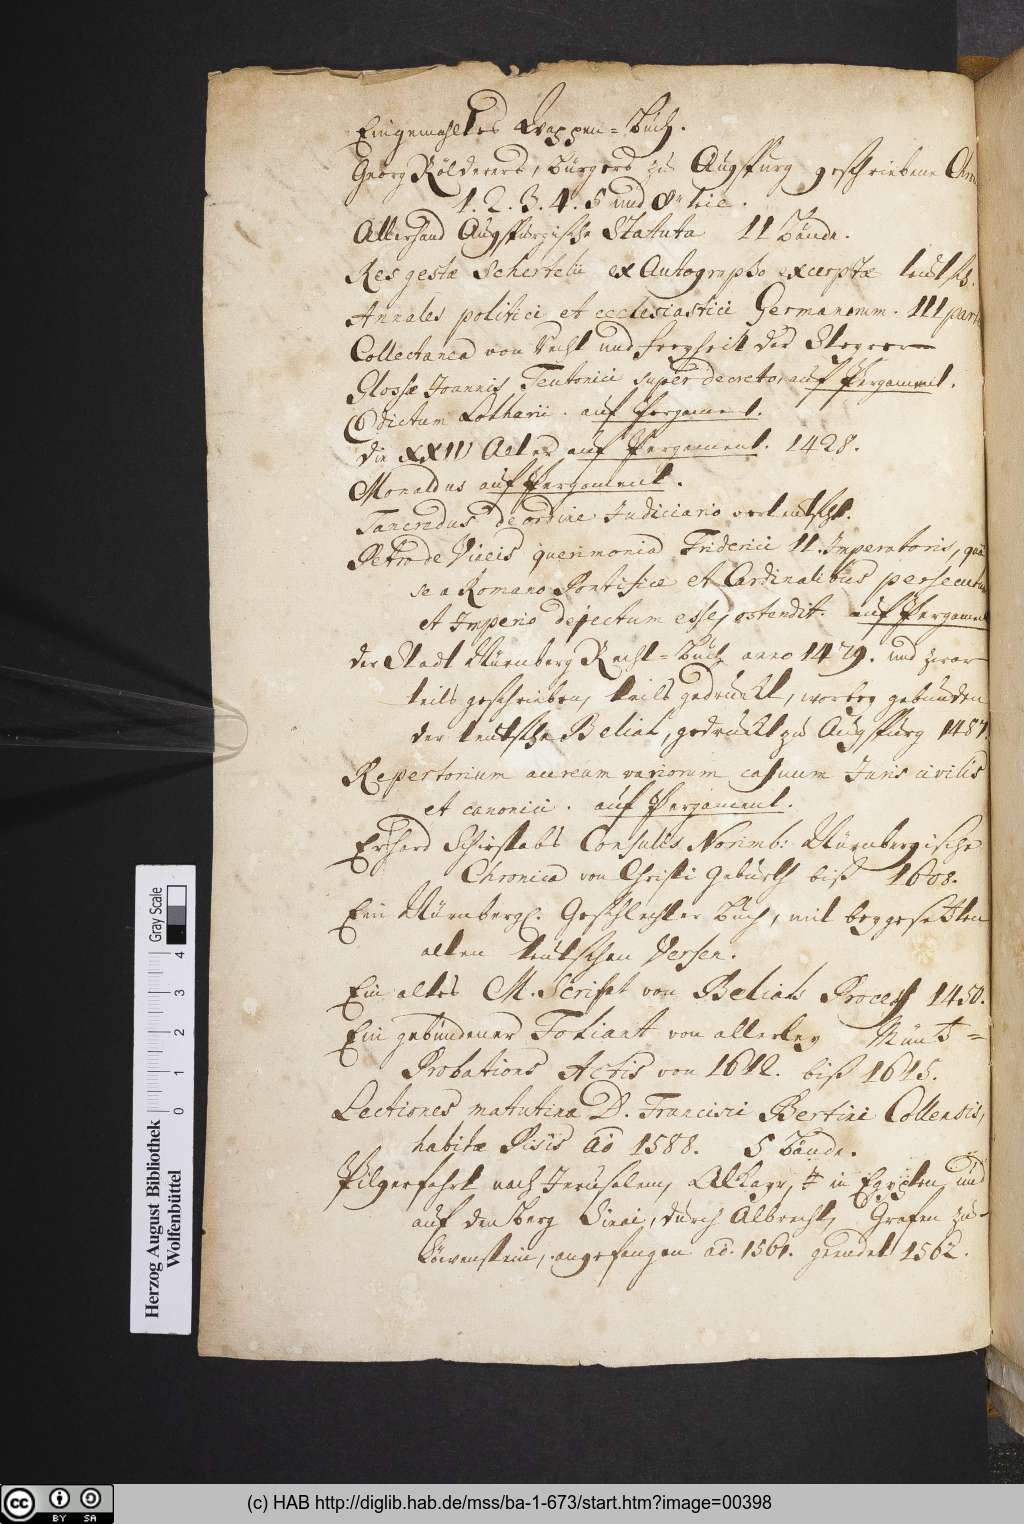 Ein gemahltes Wappen=Büch.
Georg Kölderers, bürgers zu Augspurg geschriebene
1. 2. 3. 4. 5 und 8te theil.
Allerhand Augspurgische Statuta 11 Bände.
Res gestæ Schertelii ex Autographo excerptæ teutsch.
Annales politici et ecclesiastici Germanorum. III part
Collectanea von Recht und freyheit der
Glossæ Joannis Teutonici super decreto, auf Pergament.
Edictum Lotharii. auf Pergament.
die XXIV Alten auf Pergament. 1428.
Monaldus auf Pergament.
Tancredus de ordine Judiciario verteutscht.
Petri de Vineis querimonia Friderici II. Imperatoris, qua
se a Romano Pontifice et Cardinalibus persecutum
et Imperio dejectum esse, ostendit. auf Pergament
der Stadt Nürnberg Recht=Büch anno 1479. und zwar
teils geschrieben, teils gedruckt, worbey gebunden
der teutsche Belial, gedruckt zu Augspurg 1487.
Repertorium aureum variorum casuum Juris civilis
et canonici. auf Pergament.
Erhard Schirstabs Consulis Norimb: Nürnbergische
Chronica von Christi Gebürth biß 1608.
Ein Nürnbergl. Geschlechter Büch, mit beygesetzten
alten teutschen Versen.
Ein altes M. Script von Belials Process 1450.
Ein gebundener Foliant von allerley Müntz=
Probations Actis von 1612. biß 1615.
Lectiones matutinæ D. Francisci Bertini Collensis,
habitæ Pisis Aō 1588. 5 Bände.
Pilgerfahrt nach Jerusalem, Alkayr, in Egypten und
auf den berg Sinai, durch Albrecht, Grafen zu
Löwenstein, angefangen aō. 1561. geendet 1562.
Herzog August Bibliothek
Wolfenbüttel
0 1 2 3 4
Gray Scale
CC BY SA
(c) HAB http://diglib.hab.de/mss/ba-1-673/start.htm?image=00398